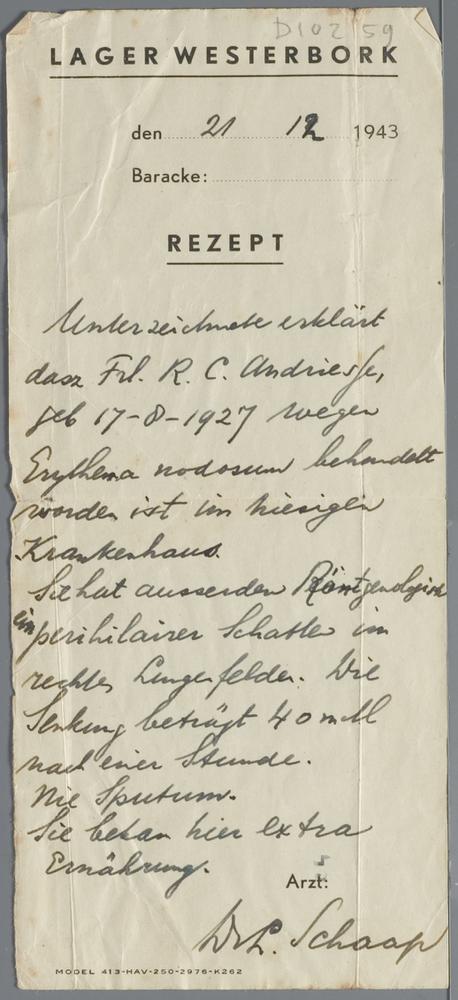 D102 59
LAGER WESTERBORK
den 21 12 1943
Baracke:
REZEPT
Unterzeichnete erklärt
dasz Frl. R. C. Andriesse,
geb 17-8-1927 wegen
Erythema nodosum behandelt
worden ist im hiesigen
Krankenhaus.
Sie hat ausserden Röntgenologisch
ein perihilairer Schatten im
rechten Lungenfelder. Die
Senkung beträgt 40 mM
nach einer Stunde.
Nie Sputum.
Sie bekam hier extra
Ernährung.
Arzt:
Dr L. Schaap
MODEL 413-HAV-250-2976-K262